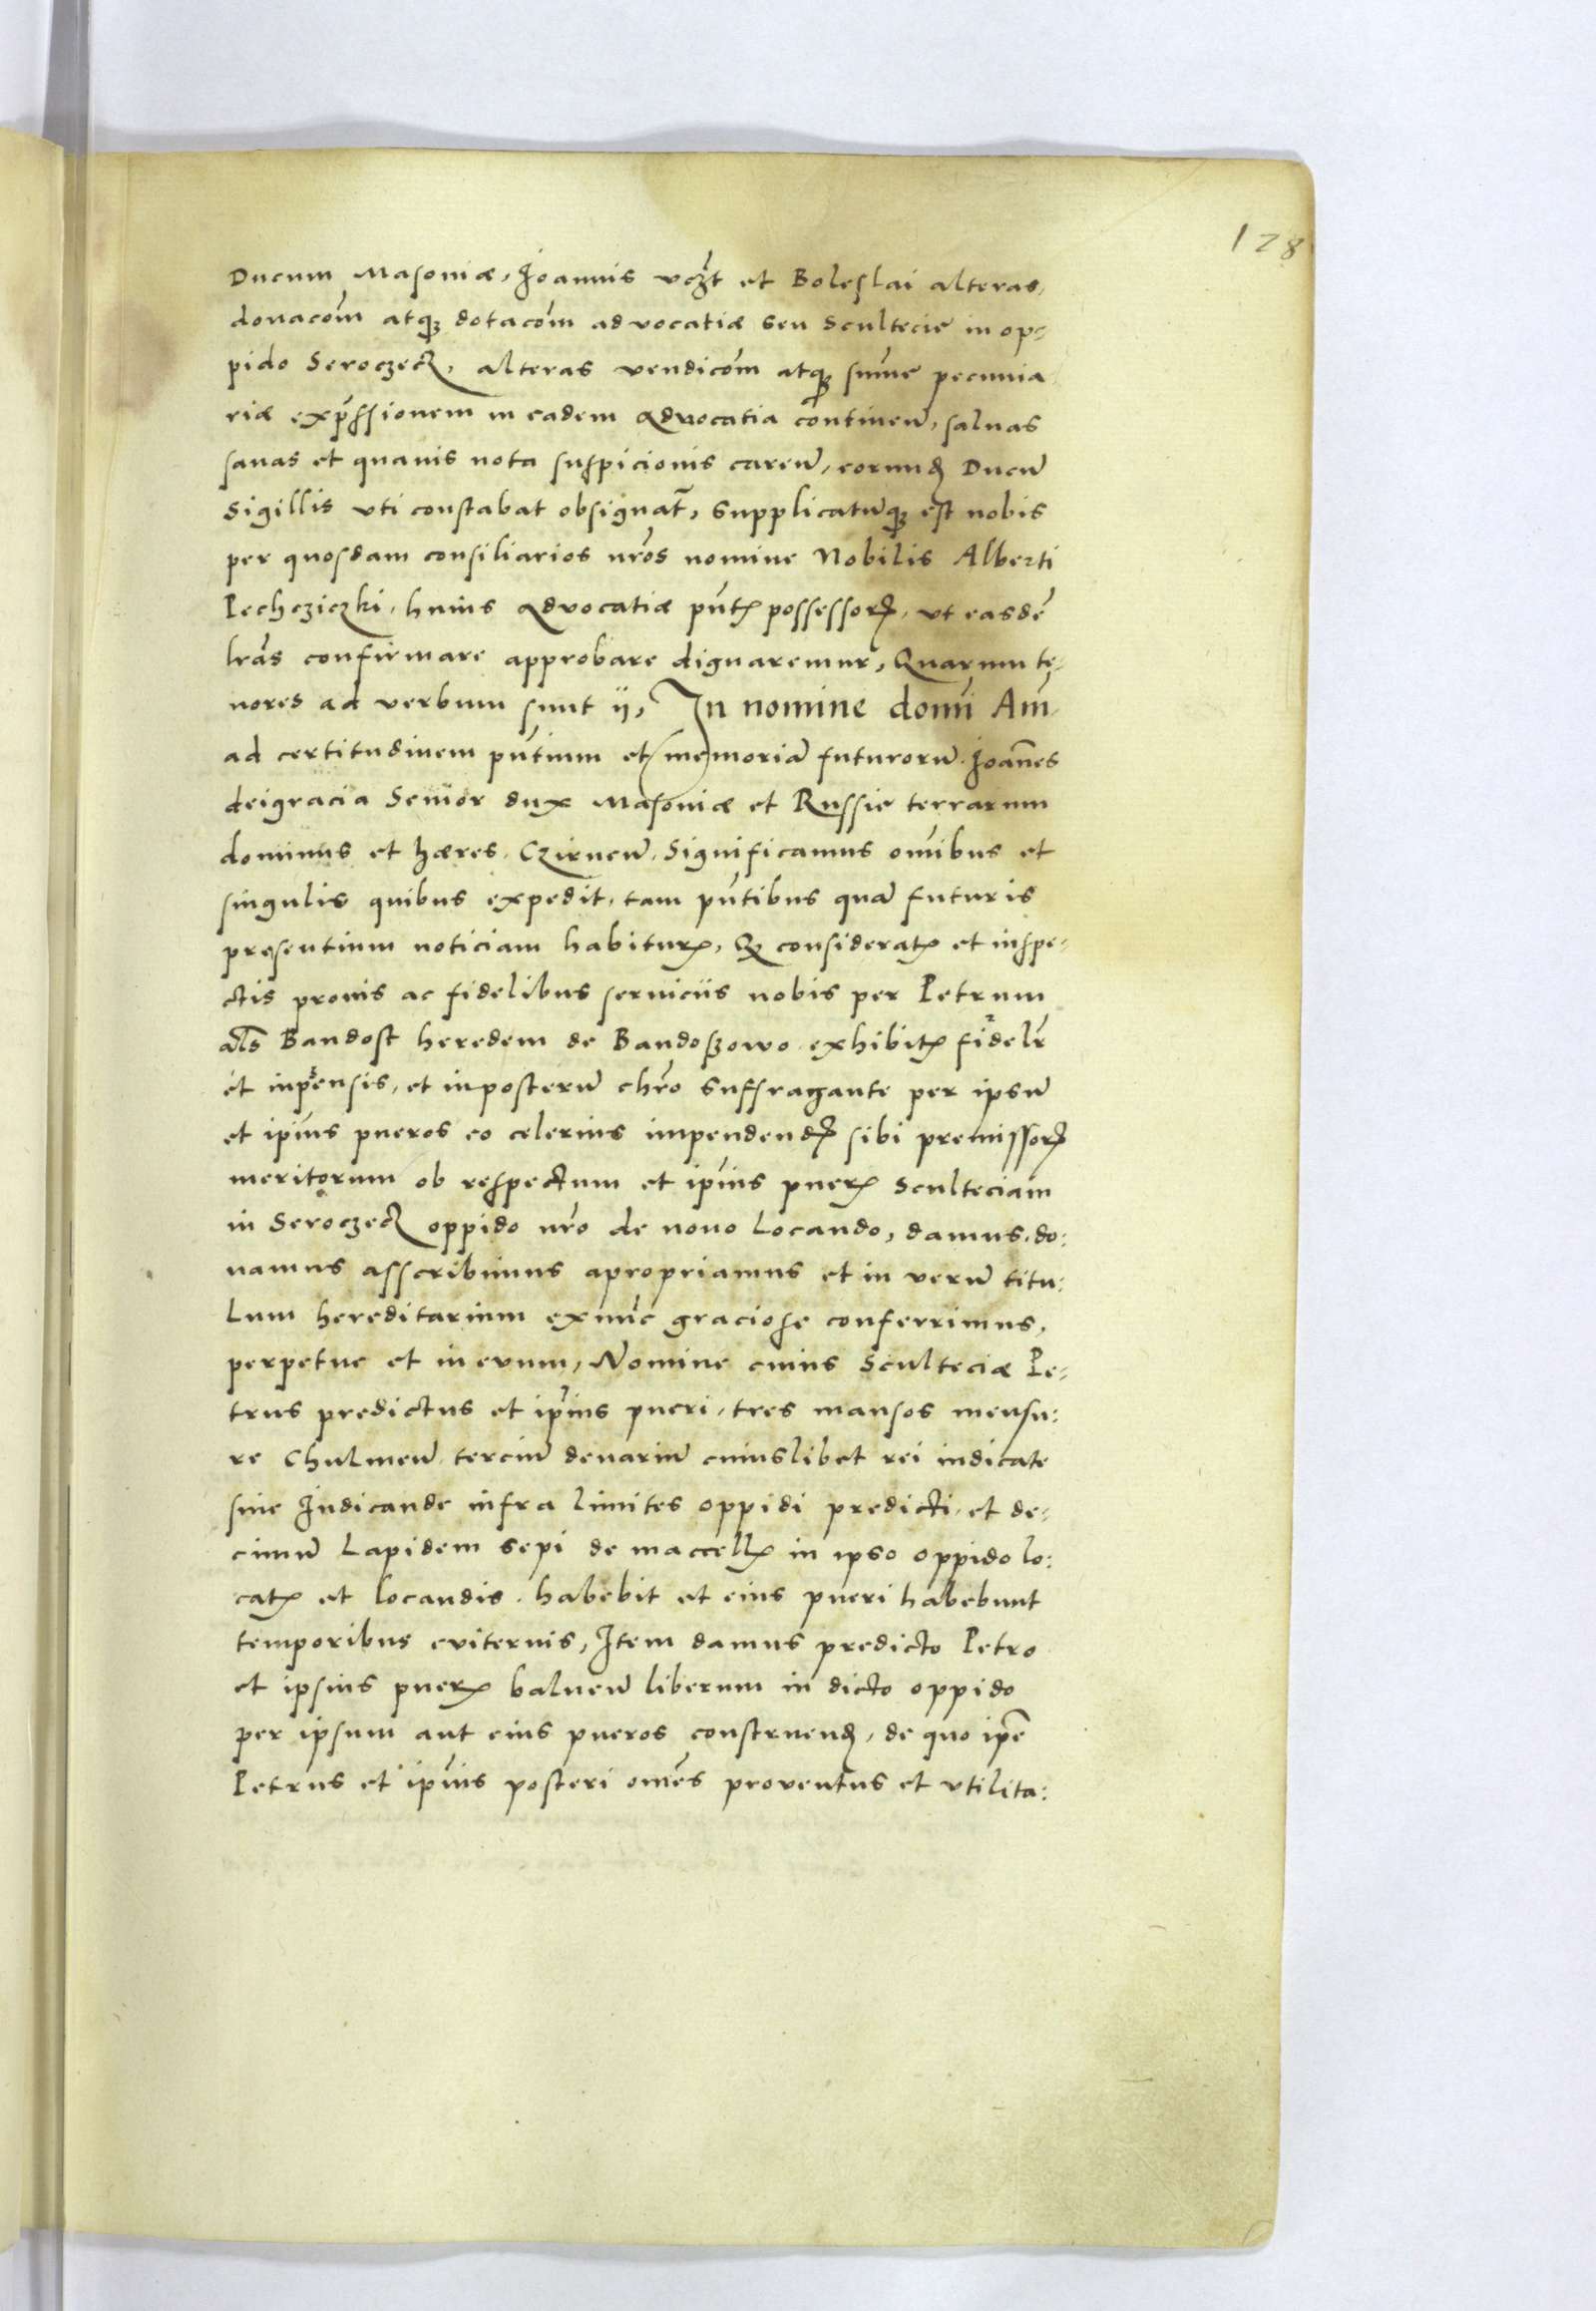 128
Ducum Masoviæ, Joannis vcꝫt et Boleslai alteras,
donacoēm atqꝫ dotacoēm advocatiæ seu Scultecie in op-
pido Seroczeck, alteras vendicoēm atqꝫ sum̄e pecunia
riæ exp̄ssionem in eadem advocatia continen̄, salvas
sanas et quavis nota suspicionis caren̄, eorund̄ Ducū
Sigillis vti constabat obsignat̄, Supplicatūqꝫ est nobis
per quosdam consiliarios nr̄os nomine Nobilis Alberti
Pechcziczki, huius advocatiæ pn̄tis possessorꝭ, vt easdē
lr̄as confirmare approbare dignaremur, Quarum te-
nores ad verbum sunt ij, In nomine domī Am̄
ad certitudinem pn̄tium et memoriā futurorū. Joan̄es
deigracia Senior dux Masoviæ et Russie terrarum
dominus et hæres, Czirnen̄. Significamus om̄ibus et
singulis quibus expedit, tam pn̄tibus quā futuris
presentium noticiam habiturꝭ, Qꝫ consideratꝭ et inspe-
ctis provis ac fidelibus serviciis nobis per Petrum
als̄ Bandost heredem de Bandoszowo exhibitꝭ fidelr̄
et inpensis, et inposterū chr̄o suffragante per ipsū
et ip̄ius pueros eo celerius impendendꝭ sibi premissorꝭ
meritorum ob respectum et ip̄ius puerꝭ Sculteciam
in Seroczeck oppido nr̄o de novo locando, damus, do:
namus asscribimus apropriamus et in verū titu:
lum hereditarium exnūc graciose conferrimus,
perpetue et in evum, Nomine cuius Sculteciæ Pe-
trus predictus et ip̄ius pueri, tres mansos mensu:
re Chulmen̄ terciū denariū cuiuslibet rei iudicate
sive Judicande infra limites oppidi predicti, et de-
cimū Lapidem sepi de maccellꝭ in ipso oppido lo:
catꝭ et locandis. habebit et eius pueri habebunt
temporibus eviternis, Item damus predicto Petro
et ipsius puerꝭ balneū liberum in dicto oppido
per ipsum aut eius pueros construend̄, de quo ip̄e
Petrus et ip̄ius posteri om̄es proventus et vtilita: